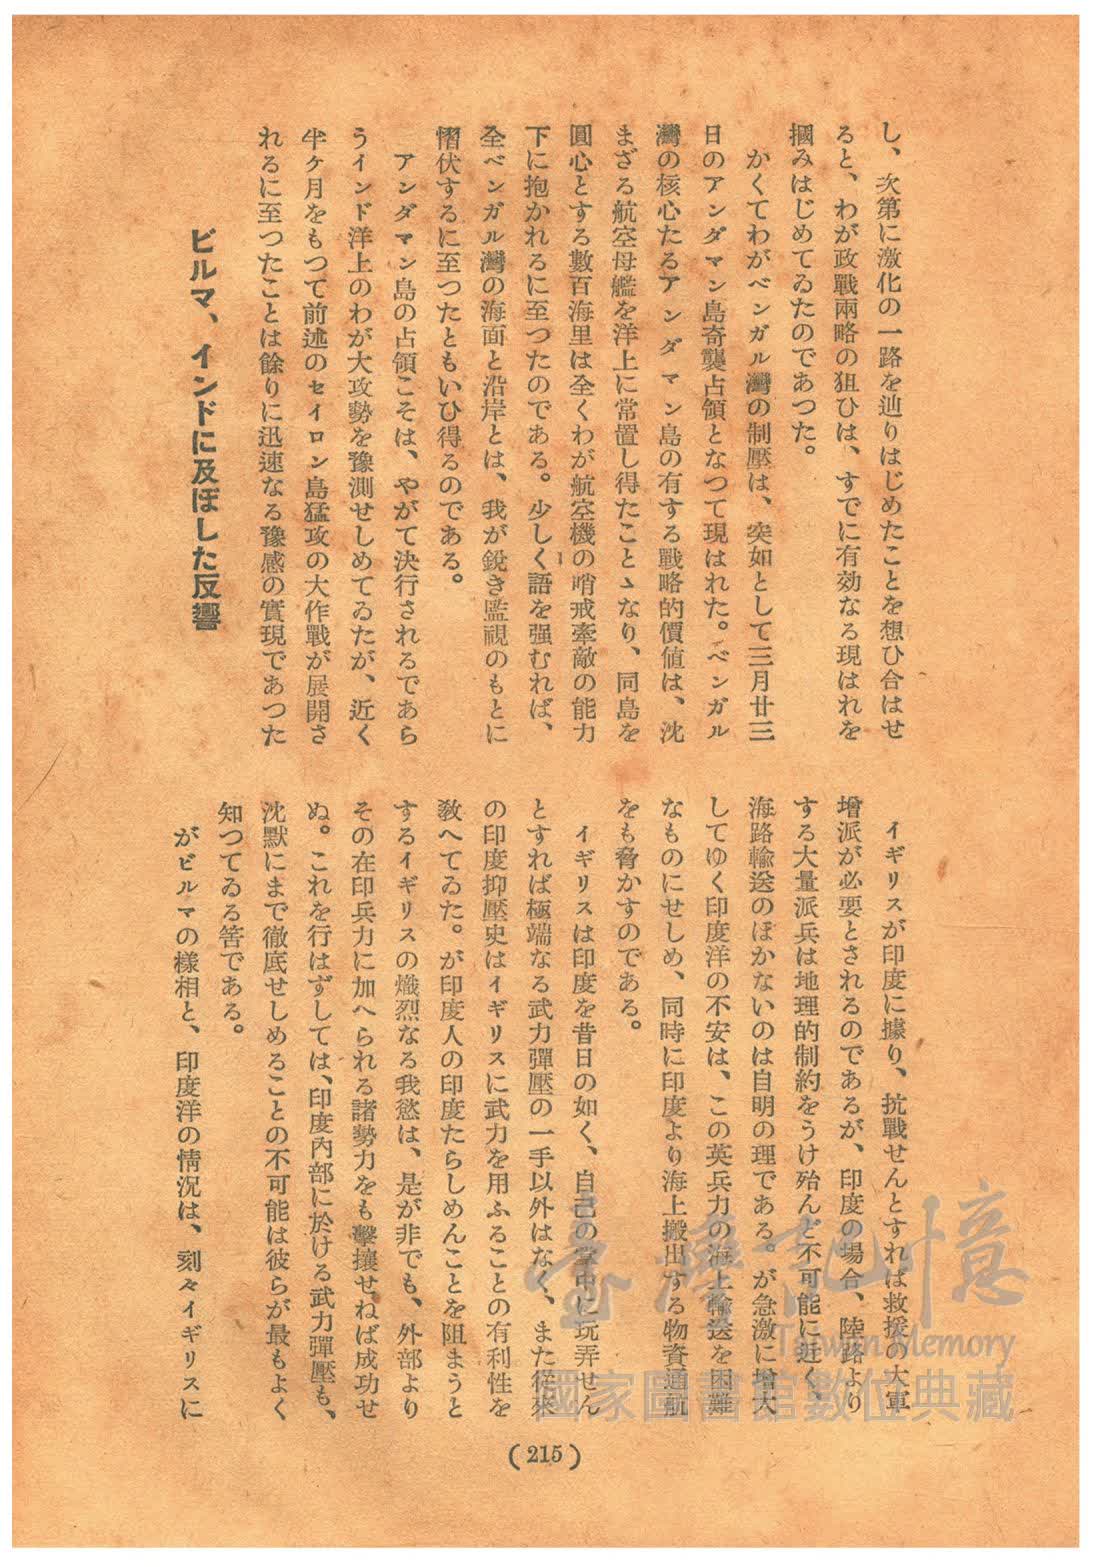 し、次第に激化の一路を辿りはじめたことを想ひ合はせ
ると、わが政戰兩略の狙ひは、すでに有効なる現はれを
摑みはじめてゐたのであつた。
かくてわがベンガル灣の制壓は、突如として三月廿三
日のアンダマン島奇襲占領となつて現はれた。ベンガル
灣の核心たるアンダマン島の有する戰略的價値は、沈
まざる航空母艦を洋上に常置し得たことゝなり、同島を
圓心とする數百海里は全くわが航空機の哨戒牽敵の能力
下に抱かれるに至つたのである。少しく語を强むれば、
全ベンガル灣の海面と沿岸とは、我が銳き監視のもとに
慴伏するに至つたともいひ得るのである。
アンダマン島の占領こそは、やがて決行されるであら
うインド洋上のわが大攻勢を豫測せしめてゐたが、近く
半ケ月をもつて前述のセイロン島猛攻の大作戰が展開さ
れるに至つたことは餘りに迅速なる豫感の實現であつた
ビルマ、インドに及ぼした反響
イギリスが印度に據り、抗戰せんとすれば救援の大軍
增派が必要とされるのであるが、印度の場合、陸路より
する大量派兵は地理的制約をうけ殆んど不可能に近く、
海路輸送のほかないのは自明の理である。が急激に增大
してゆく印度洋の不安は、この英兵力の海上輸送を困難
なものにせしめ、同時に印度より海上搬出する物資通航
をも脅かすのである。
イギリスは印度を昔日の如く、自己の掌中に玩弄せん
とすれば極端なる武力彈壓の一手以外はなく、また從來
の印度抑壓史はイギリスに武力を用ふることの有利性を
敎へてゐた。が印度人の印度たらしめんことを阻まうと
するイギリスの熾烈なる我慾は、是が非でも、外部より
その在印兵力に加へられる諸勢力をも擊攘せねば成功せ
ぬ。これを行はずしては、印度內部に於ける武力彈壓も、
沈默にまで徹底せしめることの不可能は彼らが最もよく
知つてゐる筈である。
がビルマの樣相と、印度洋の情況は、刻々イギリスに
(215)
臺灣記憶
Taiwan Memory
國家圖書館數位典藏